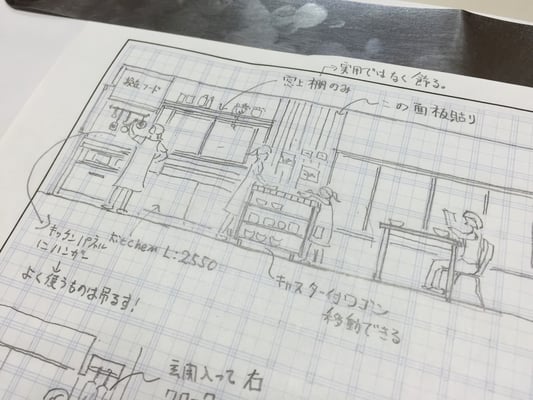 実用ではなく飾る。
窓上棚のみ
この面板貼り
フード
キッチンパネル
にハンガー
Kitchen L:2550
よく使うものは吊るす!
キャスター付ワゴン
移動できる
玄関入って右